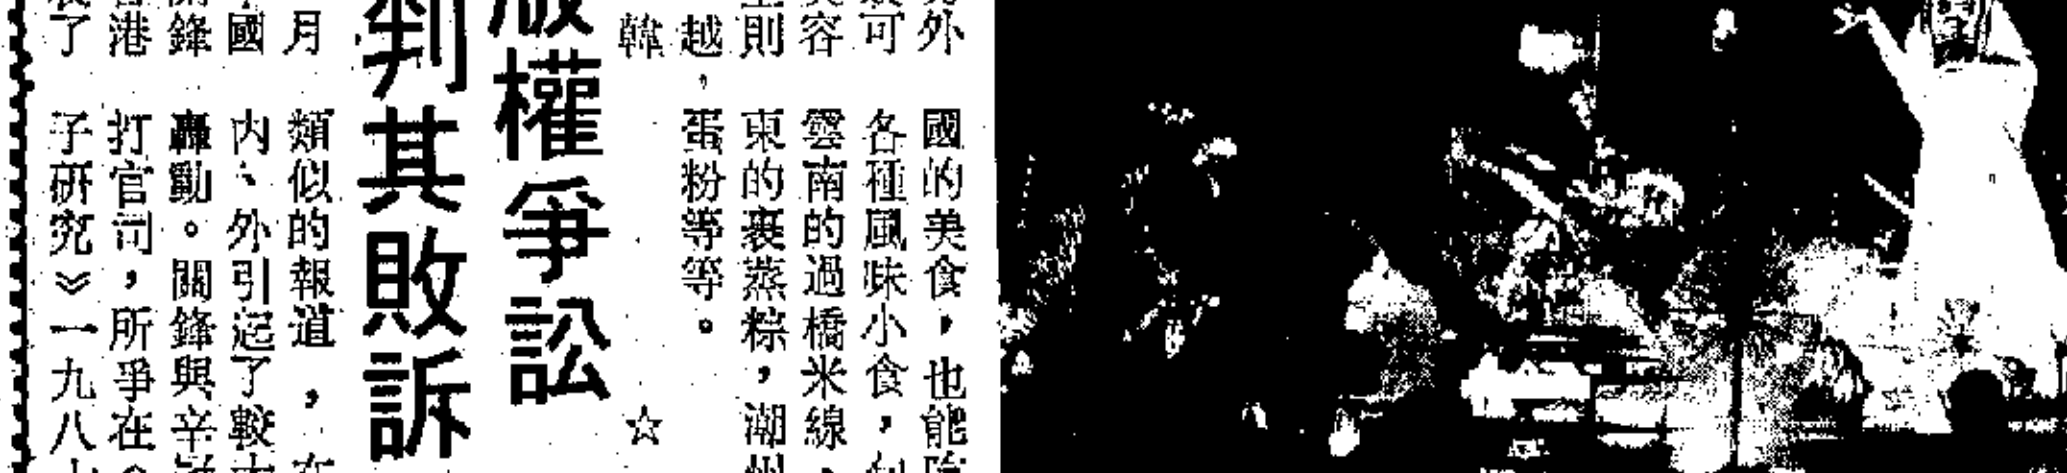 外國的美食，也能
可各種風味小食，
容雲南的過橋米線、
則東的裹蒸粽，潮州
越，蛋粉等等。
韓 ☆
版權爭訟
判其敗訴
月類似的報道，在
國內、外引起了較大
鋒轟動。關鋒與辛
港打官司，所爭在《
了子研究》一九八